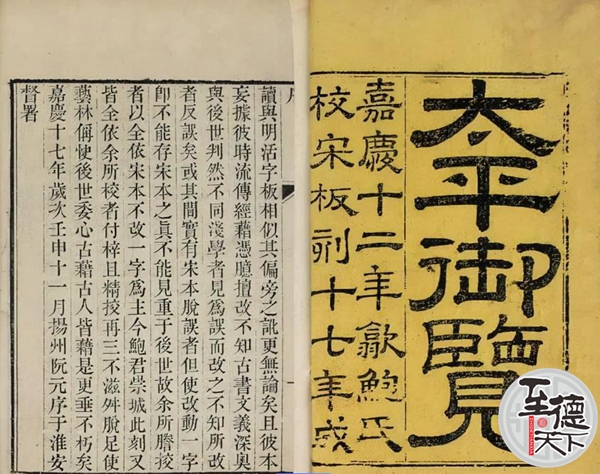 太平御覽
嘉慶十二年歙鮑氏
校宋板刻十七年成
讀與明活字板相似其偏旁之訛更無論矣且彼本
妄據彼時流傳經藉憑臆擅改不知古書文義深奧
與後世判然不同淺學者見爲誤而改之不知所改
者反誤矣或其間實有宋本脫誤者但使改動一字
卽不能存宋本之眞不能見重于後世故余所謄挍
者以全依宋本不改一字爲主今鮑君崇城此刻又
皆全依余所挍者付梓且精挍再三不滋舛脫足使
藝林偁快後世委心古藉古人皆藉是更垂不朽矣
嘉慶十七年歲次壬申十一月揚州阮元序于淮安
督署
至德天下